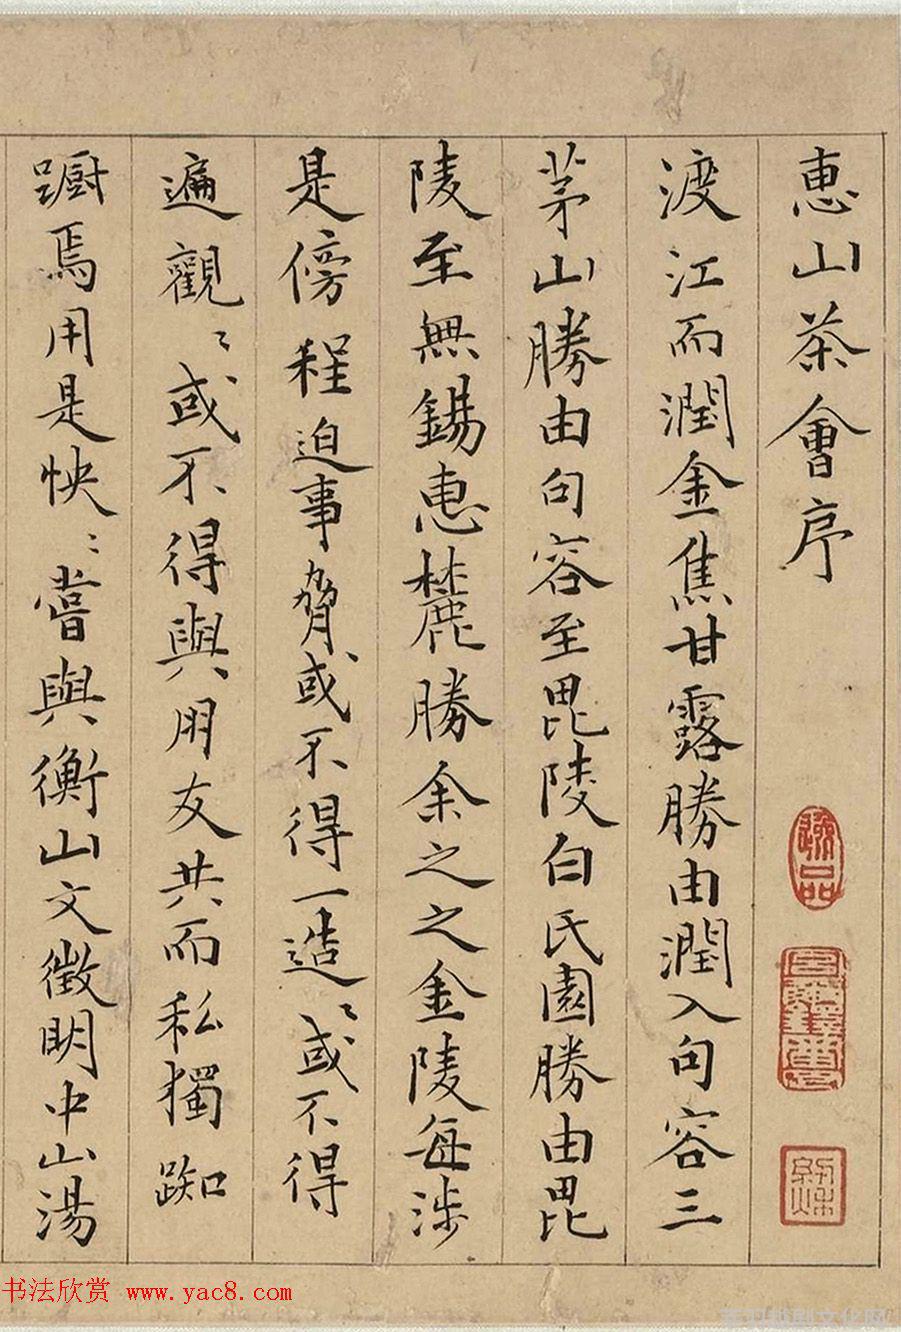 惠山茶會序
渡江而潤金焦甘露勝由潤入句容三
茅山勝由句容至毘陵白氏園勝由毘
陵至無錫惠麓勝余之之金陵每涉
是傍程迫事脅或不得一造〻或不得
遍觀〻或不得與朋友共而私獨踟
蹰焉用是怏〻嘗與衡山文徵明中山湯
书法欣赏 www.yac8.com